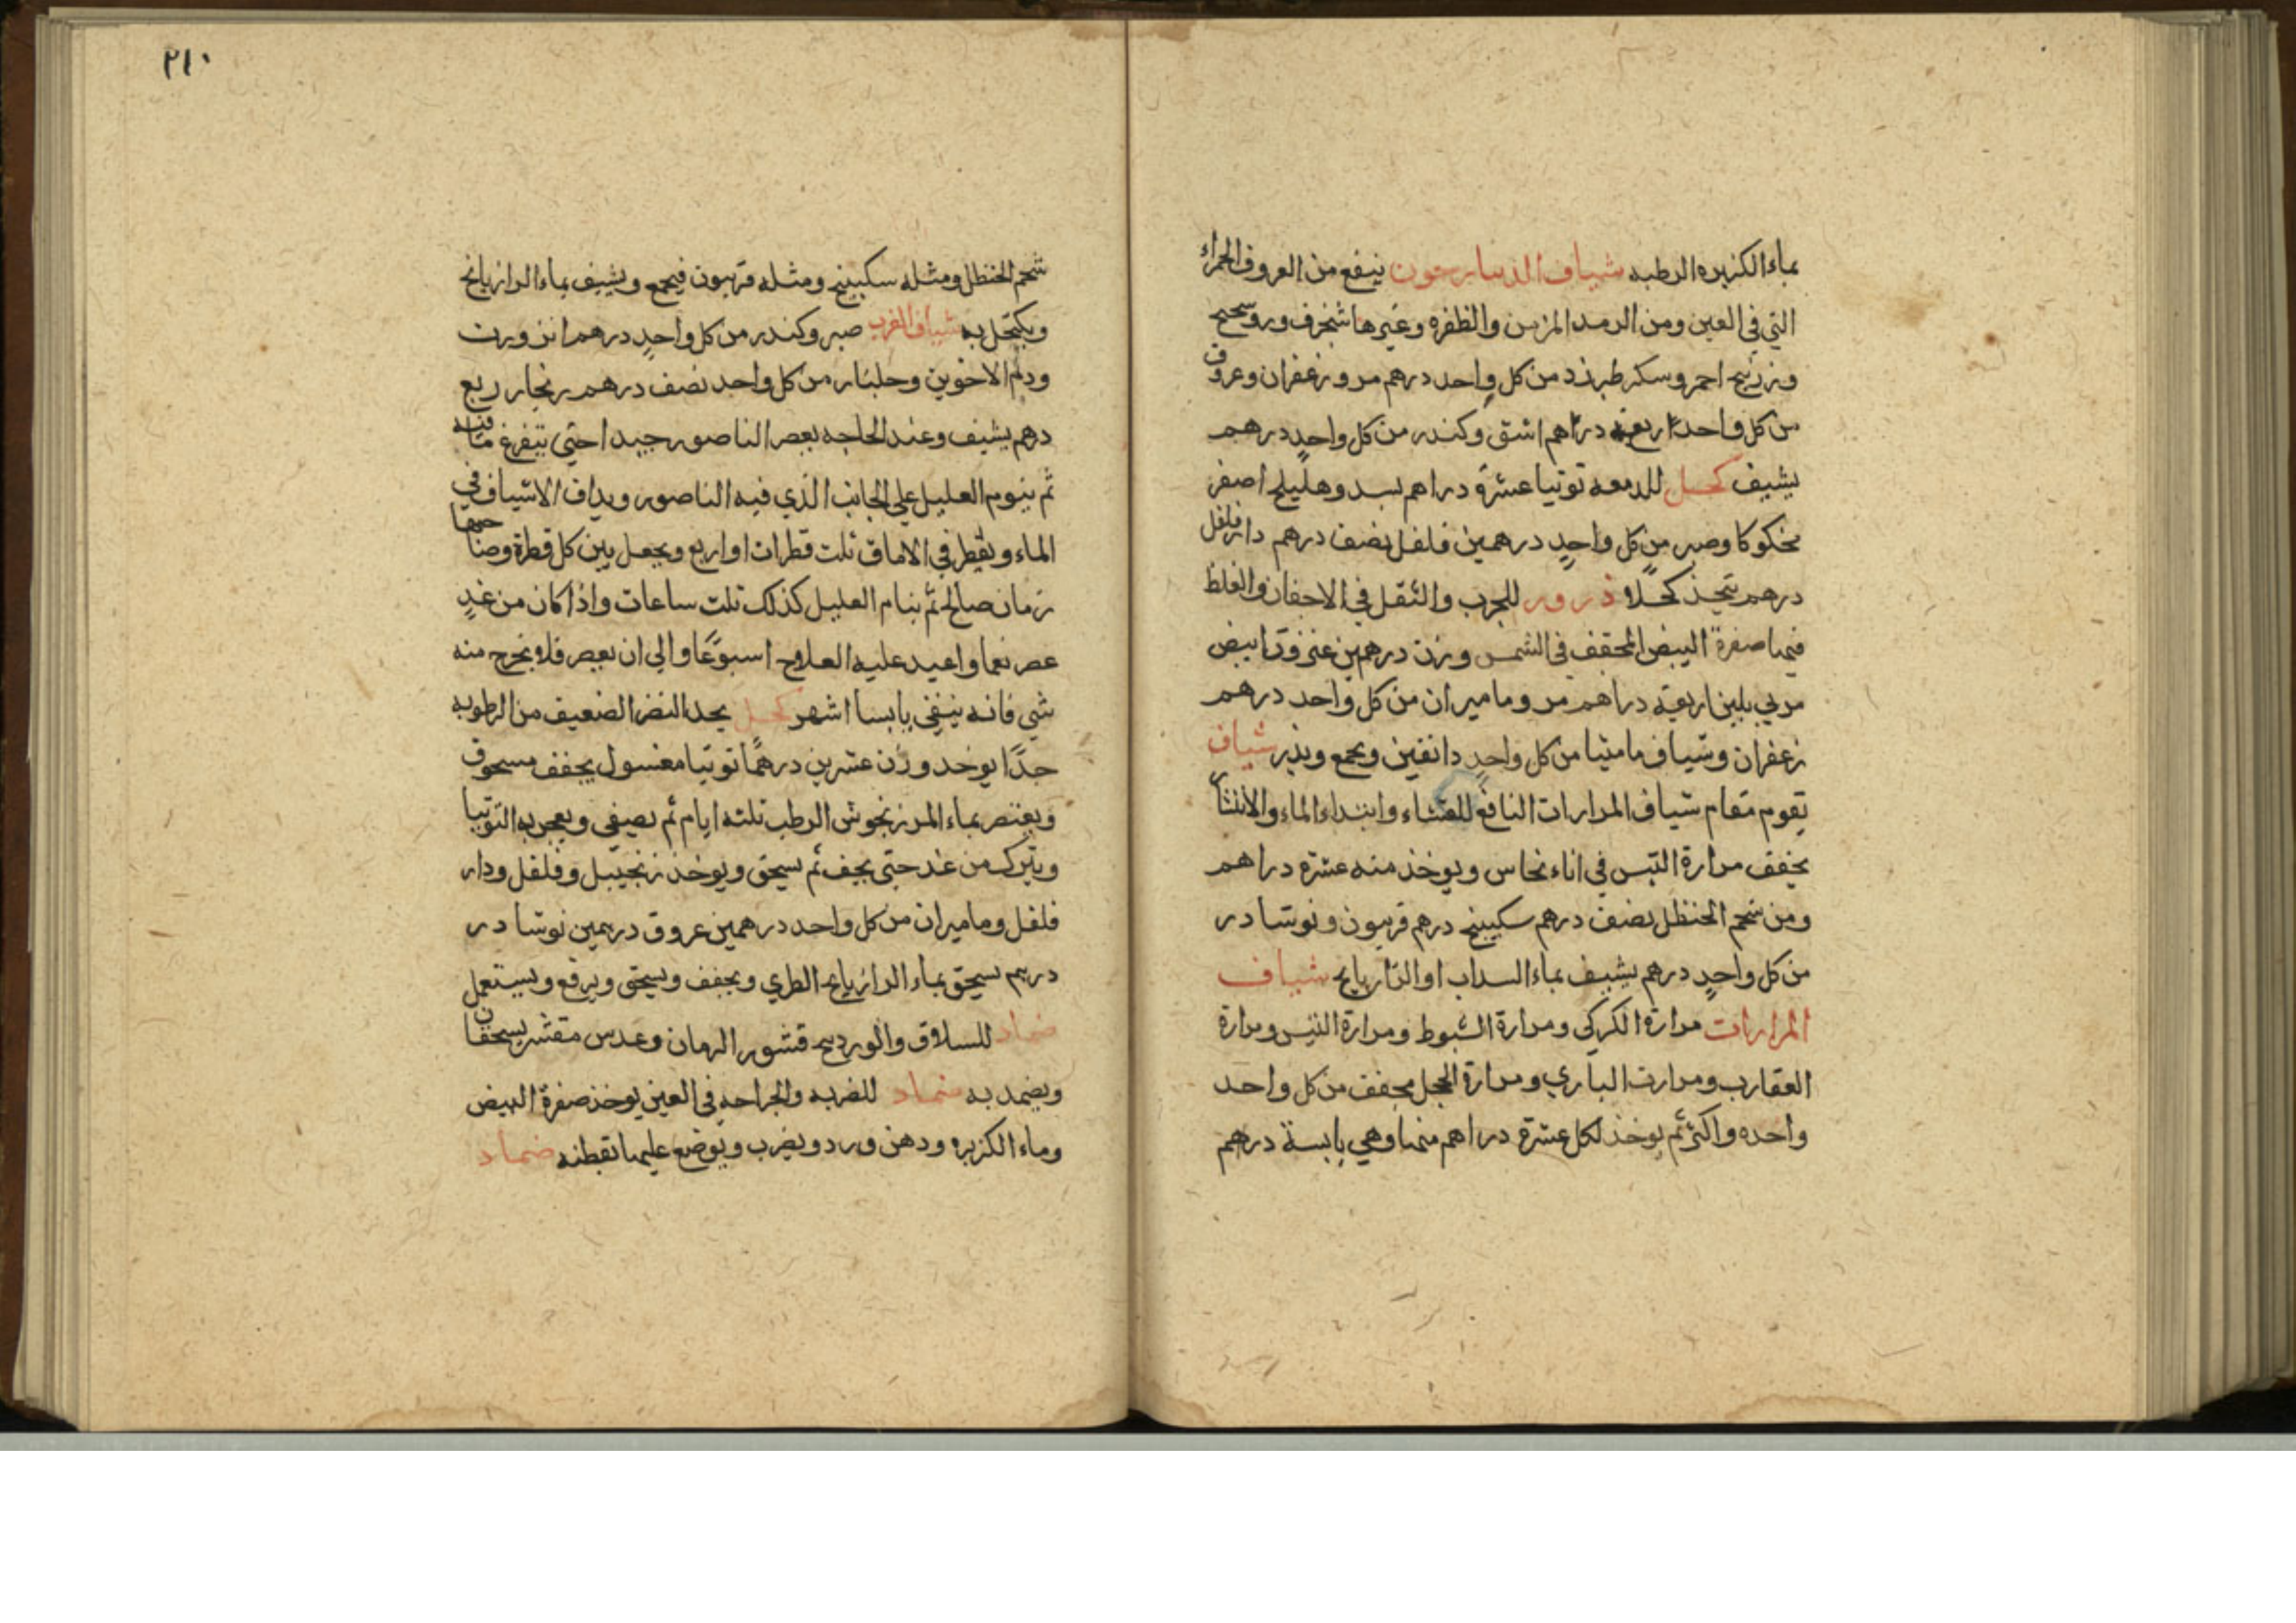 بماء الكزبره الرطبه شياف الدينارجون ينفع من العروق الحمراء
التي في العين ومن الرمد المزمن والظفره وغيرها شنجرف وروسحتج
وزرنيخ احمر وسكر طبرزد من كل واحد درهم مر وزعفران وعروق
من كل واحد اربعه دراهم اشق وكندر من كل واحدٍ درهم
يشيف كحل للدمعه توتيا عشرة دراهم بسد وهليلج اصفر
محكوكا وصبر من كل واحدٍ درهمين فلفل نصف درهم دارفلفل
درهم يتخذ كحلا ذرور للجرب والثقل في الاجفان والغلظ
فيها صفرة البيض المجفف في الشمس وزن درهمين عنزروت ابيض
مربي بلبن اربعة دراهم مر وماميران من كل واحد درهم
زعفران وشياف ماميثا من كل واحدٍ دانقين ويجمع ويذر شياف
تقوم مقام شياف المرارات النافع للغشاء وابتداء الماء والانتشار
يجفف مرارة التيس في اناء نحاس ويوخذ منه عشرة دراهم
ومن شحم الحنظل نصف درهم سكبينج درهم فربيون ونوشادر
من كل واحدٍ درهم يشيف بماء السداب او الرازيانج شياف
المرارات مرارة الكركي ومرارة الشبوط ومرارة التيس ومرارة
العقارب ومرارت البازي ومرارة الحجل مجفف من كل واحد
واحده واكثر ثم يوخذ لكل عشرة دراهم منها وهي يابسة درهم
٢١٠
شحم الحنظل ومثله سكبينج ومثله فربيون فيجمع ويشيف بماء الرازيانج
ويكتحل به شياف الغرب صبر وكندر من كل واحدٍ درهم انزورت
ودم الاخوين وجلنار من كل واحد نصف درهم زنجار ربع
درهم يشيف وعند الحاجه يعصر الناصور جيدا حتي يتفرغ ما فيه
ثم ينوم العليل علي الجانب الذي فيه الناصور ويداف الاشياف في
الماء ويقطر في الاماق ثلت قطرات او اربع ويجعل بين كل قطرة وصاحبتها
زمان صالح ثم ينام العليل كذلك ثلت ساعات واذا كان من غدٍ
عصر نعما واعيد عليه العلاج اسبوعًا والي ان يعصر فلا يخرج منه
شي فانه ينقي يابسا اشهر كحل يحد النظر الضعيف من الرطوبه
جدًا يوخد وزن عشرين درهمًا توتيا مغسول يجفف مسحوق
ويعتصر بماء المرزنجوش الرطب ثلثه ايام ثم يصفي ويعجن به التوتيا
ويترك من غد حتى يجف ثم يسحق ويوخذ زنجبيل وفلفل ودار
فلفل وماميران من كل واحد درهمين عروق درهمين نوشادر
درهم يسحق بماء الرازيانج الطري ويجفف ويسحق ويرفع ويستعمل
ضماد للسلاق والوردينج قشور الرمان وعدس مقشر يسحقان
ويضمد به ضماد للضربه والجراحه في العين يوخذ صفرة البيض
وماء الكزبره ودهن ورد ويضرب ويوضع عليها بقطنه ضماد